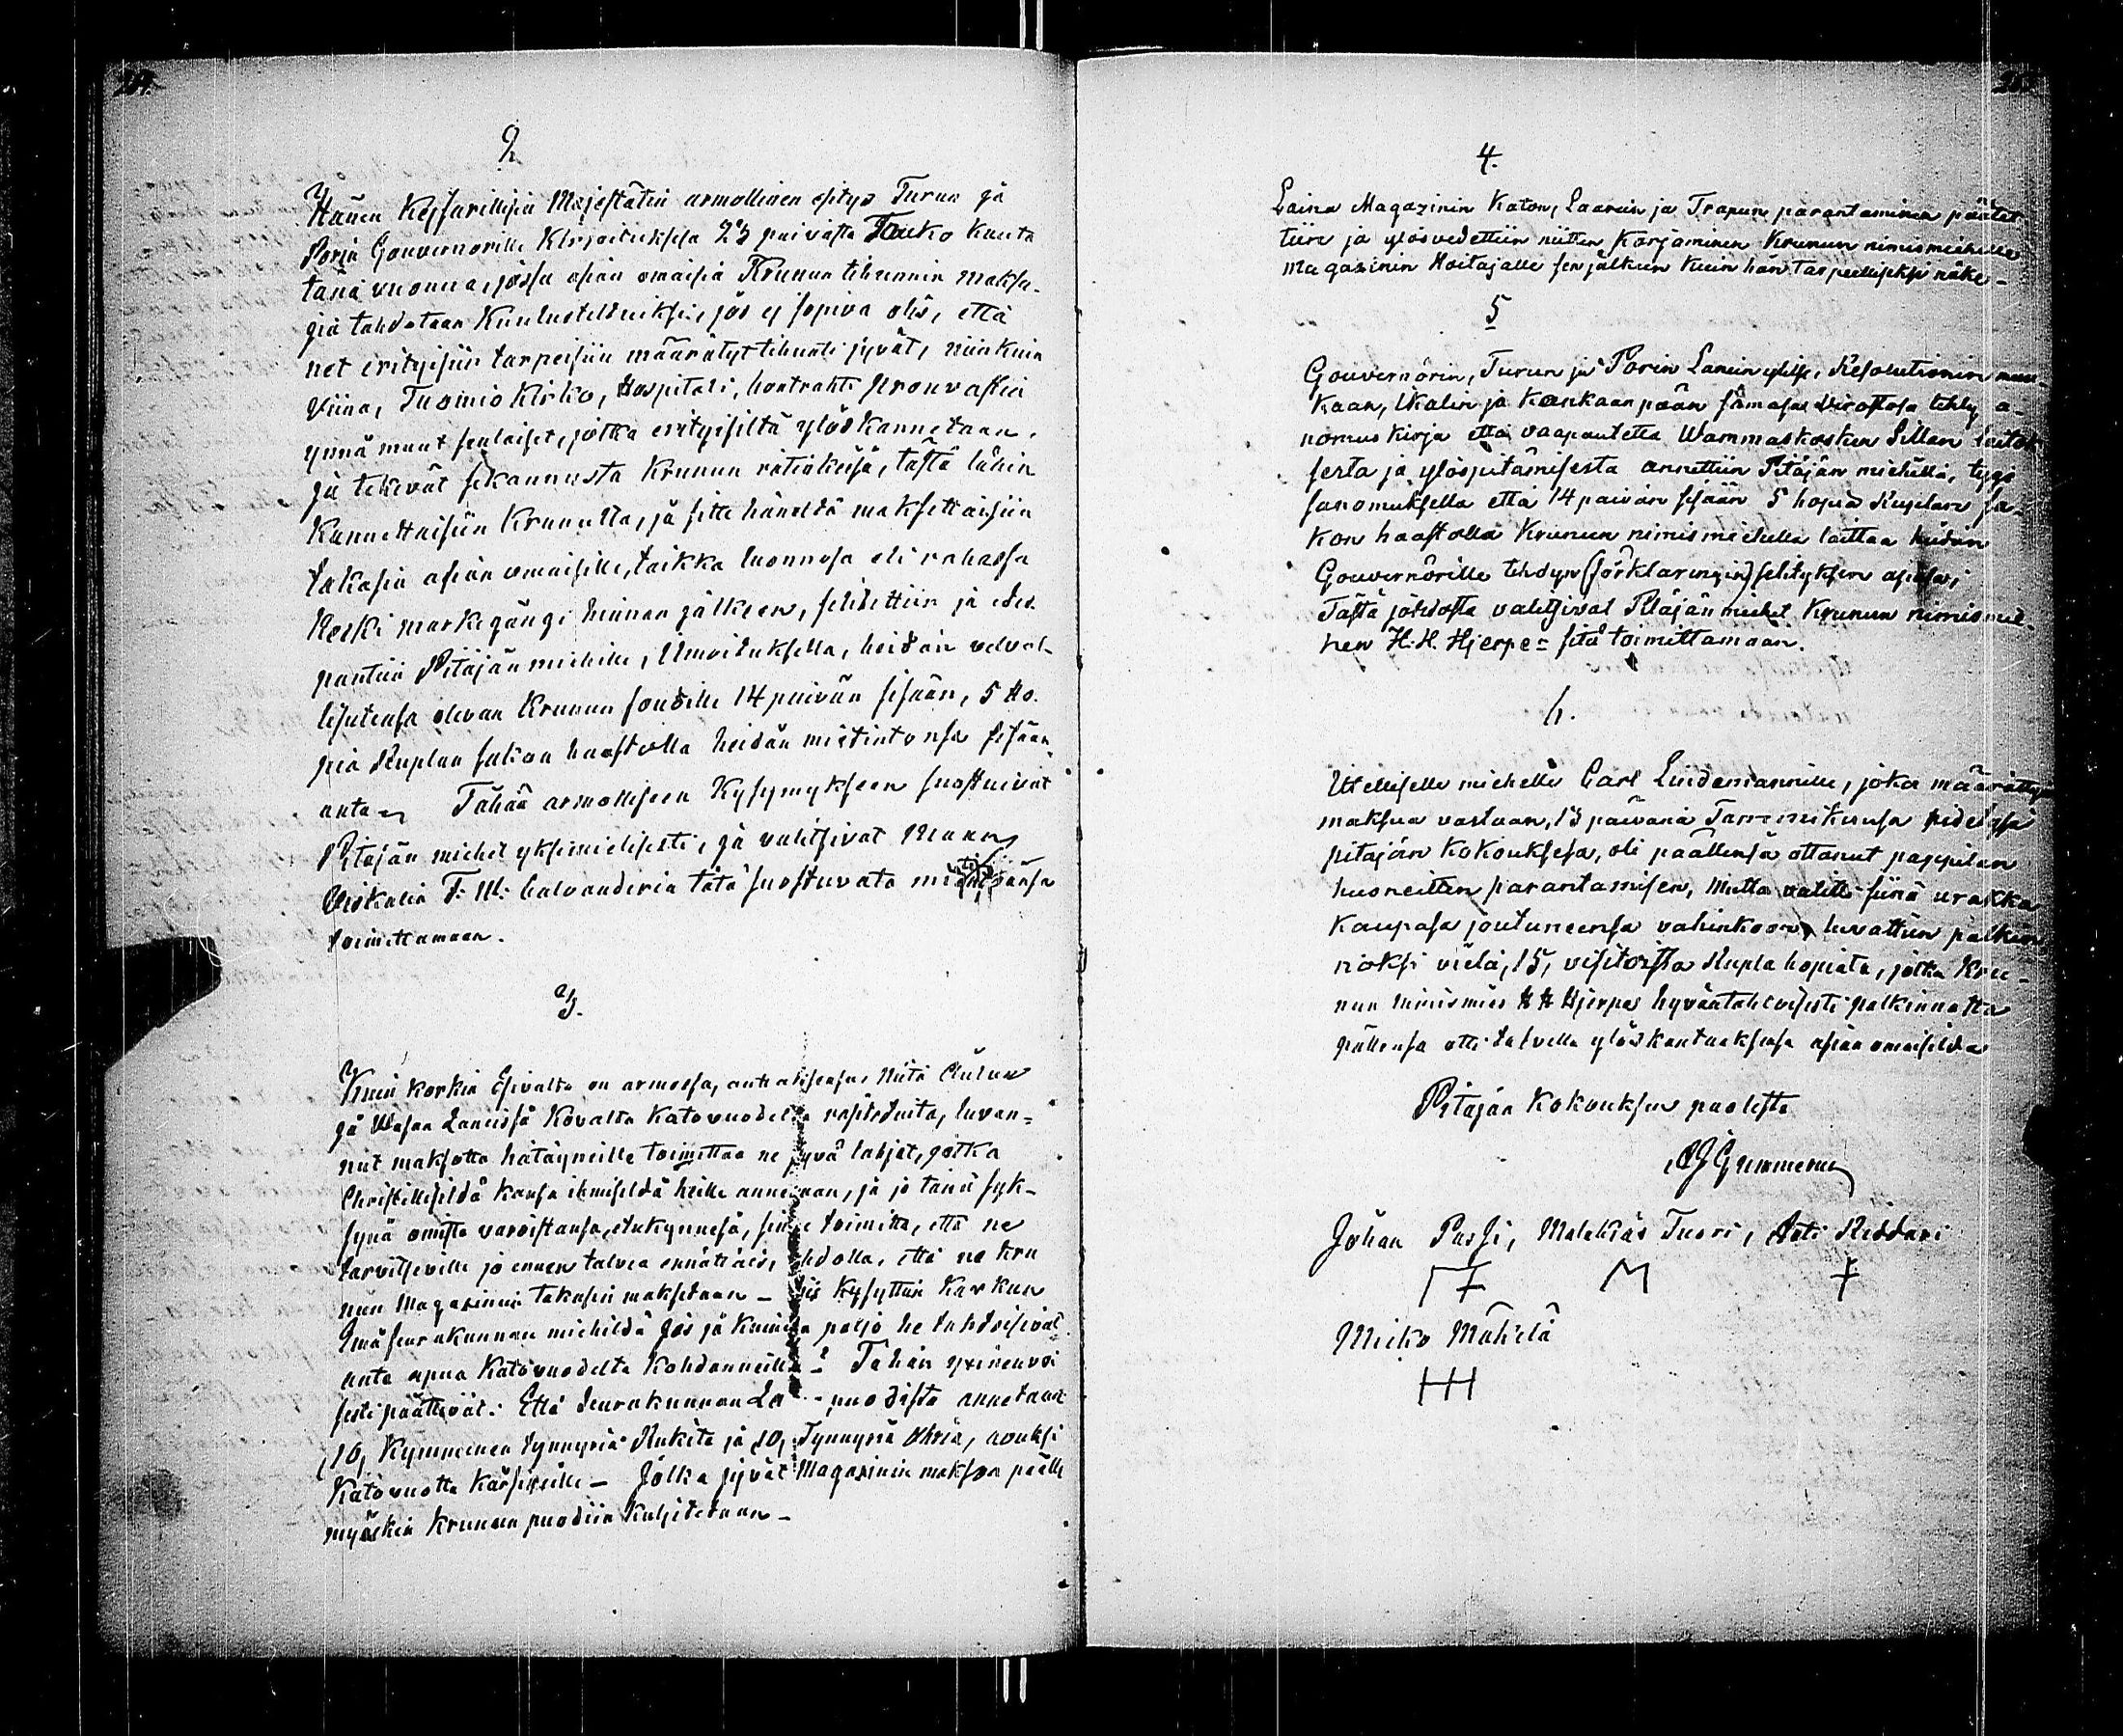 2
Hänen Kejsarillisen Majestätin armollinen esitys Turun ja
Porin Gouvernorille Kirjoituksesa 23 päivästä Touko kuuta
tänä vuonna, jossa asian omaisia Krunun tihunnin maksa-
jia tahdotaan Kuulusteltuiksi, jos ej sopiva olis, että
net erityisiin tarpeisiin määrätyt tihunti jyvät, niinkuin
Viina, Tuomio Kirko, Hospitali, kontrahti prouvastin
ynnä muut senlaiset, jotka erityisiltä ylöskannetaan,
ja tekevät sekannusta Krunun rätinkeisä, tästä lähin
Kannettaisiin Krunulta, ja sitte häneldä maksettaisiin
takasin asian omaisille, taikka luonnosa eli rahassa
Keski markegångi hinnan jälkeen, selitettiin ja edes
pantiin Pitäjän miehille, Ilmoituksella, heidän velvol-
lisutensa olevan Krunun fouville 14 päivän sisään, 5 Ho-
pia Ruplan sakon haastolla heidän mietintönsä sisään
anta. Tähän armolliseen Kysymykseen suostuivat
Pitäjän miehet yksimielisesti, ja valitsivat Maan
Viskalin F: W: Calvanderia tätä suostuvata
toimittamaan.
3.
Kuin korkia Esivalta on armossa, niitä Oulun
ja Wasan Läneissä Kovalta Katovuodelta rasitetuita, luvan-
nut maksotta hätäyneille toimittaa ne jyvä lahjat, jotka
Christillisildä kansa ihmisildä heille annetaan, ja jo tänä syk-
synä omista varoistansa, etukynnesä, sinne toimitta, että ne
tarvitseville jo ennen talvea ennättäis, ehdolla, että ne kru
nun Magasinnin takasin maksetaan - Nijs Kysyttiin Karkun
Emäseurakunnan miehildä Jos ja Kuinka paljo he tahdoisivat
anta apua Katovuodelta Kohdanneille? Tähän yximenvoi
sesti päättivät: Että Seurakunnan La-puodista annetaan
,10, Kymmenen tynnyriä Rukita ja 10, Tynnyriä Ohria, avuksi
Katovuotta Kärsineille - Jotka jyvät Magasinin makson päälle
myöskin Krunun puodiin Kuljetetaan -
4.
Laina Magazinin Katon, Laarein ja Trapun parantaminen päätet
tiin ja ylösvedettiin niitten Korjaminen Krunun nimismiehelle
Magasinin Hoitajalle sen jälkeen kuin hän tarpeelliseksi näke-
5
Gouvernörin, Turun ja Porin Länin ylitse, Resolutionin muu-
kaan, Ikalin ja Kankaanpään tehty a-
nomus kirja että vaapautetta Wammaskosken Sillan laitok
sesta ja ylöspitämisesta annettiin Pitäjän miehillä, tygö
sanomuksella että 14 päivän sisään 5 hopia Ruplan sa-
kon haastolla Krunun nimismiehellä laittaa heidän
Gouvernörille tehdyn (förklaringin) selityksen asiasa;
Tästä johdosta valitsivat Pitäjän miehet Krunun nimismie-
hen H. H. Hjerpe: sitä toimittamaan.
6.
Itselliselle miehelle Carl Lindemannille, joka määrättyä
maksua vastaan, 13 päivänä Tammikuusa pidetysä
pitäjän Kokouksesa, oli päällensä ottanut pappilan
huoneitten parantamisen, Mutta valitti siinä urakka
Kaupasa joutuneensa vahinkoon, luvattiin palkin
noksi vielä, 15, visitoista Rupla hopiata, jotka Kru-
nun Nimismies H H Hjerpe hyväntahtoisesti palkinnotta
pällensä otti talvella ylöskantaaksensa asian omaisilda
Pitäjän Kokouksen puolesta
Gummerus
Johan Passi, Malakias Tuori, Anti Riddari
M
Miko Mäkelä